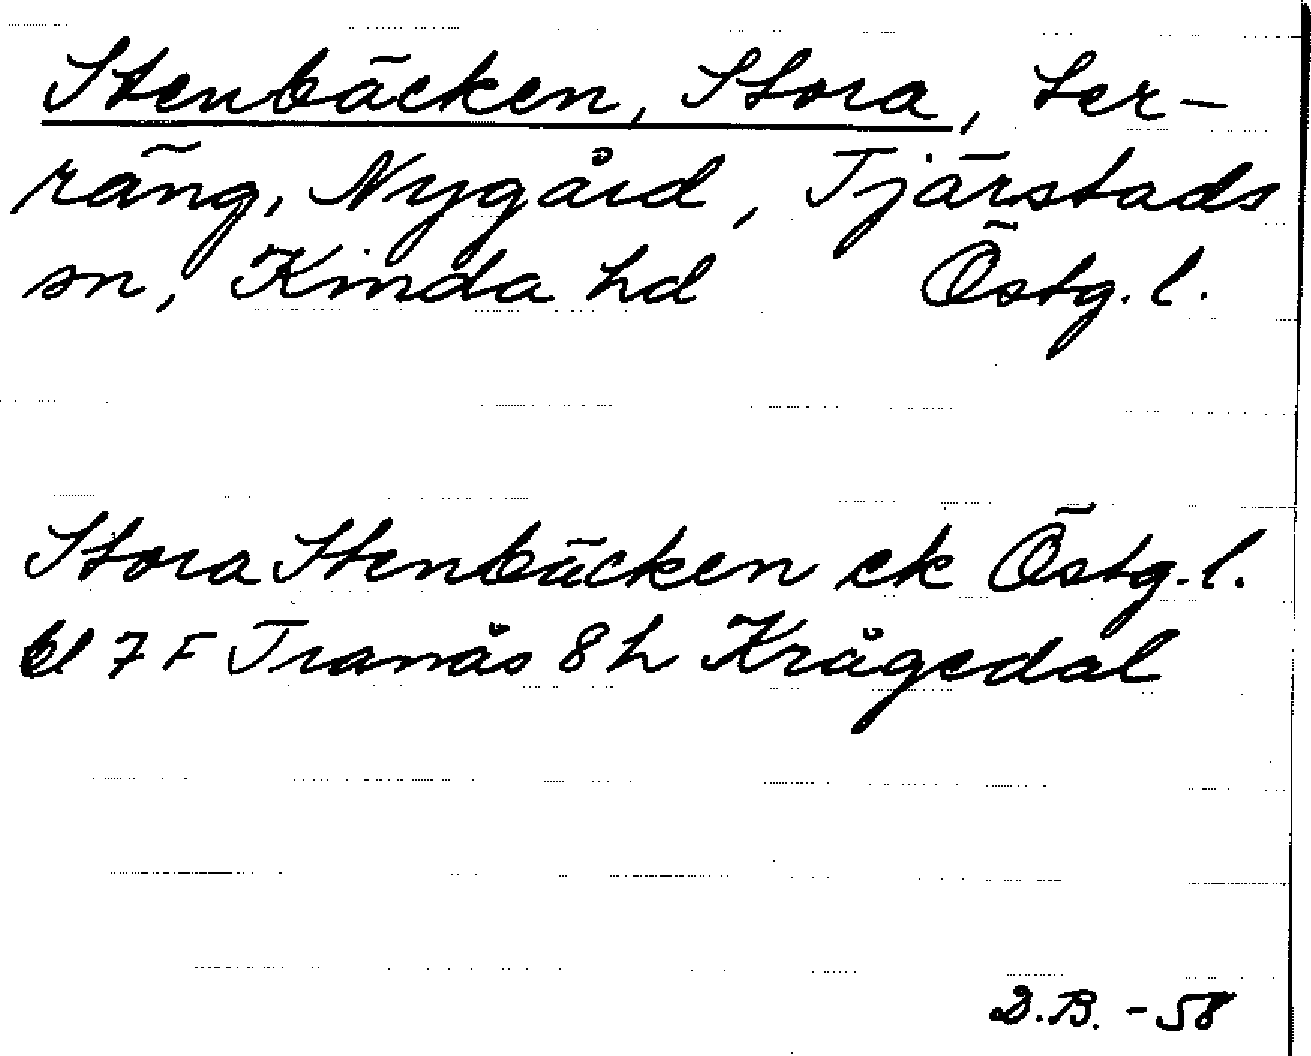 Stenbäcken, Stora, ter-
räng, Nygård, Tjärstads
sn, Kinda hd Östg. l.
Stora Stenbäcken ek Östg. l.
bl 7 F Tranås 8 h Krågedal
D.B. - 58